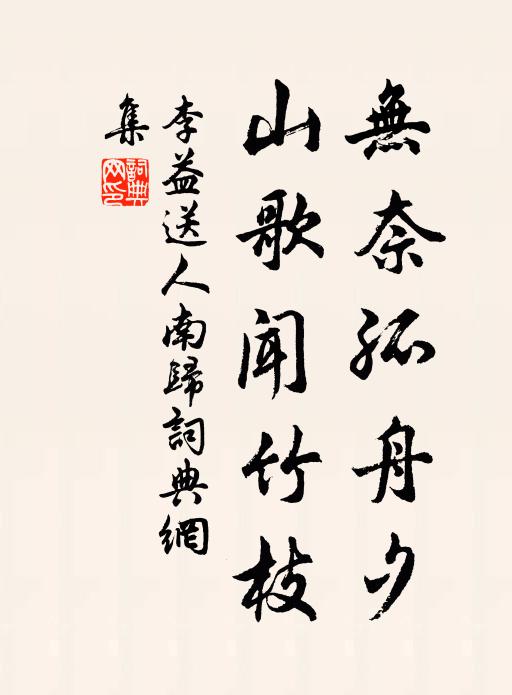 無奈孤舟夕
山歌聞竹枝
李益送人南歸詞典網
集
詞典網印